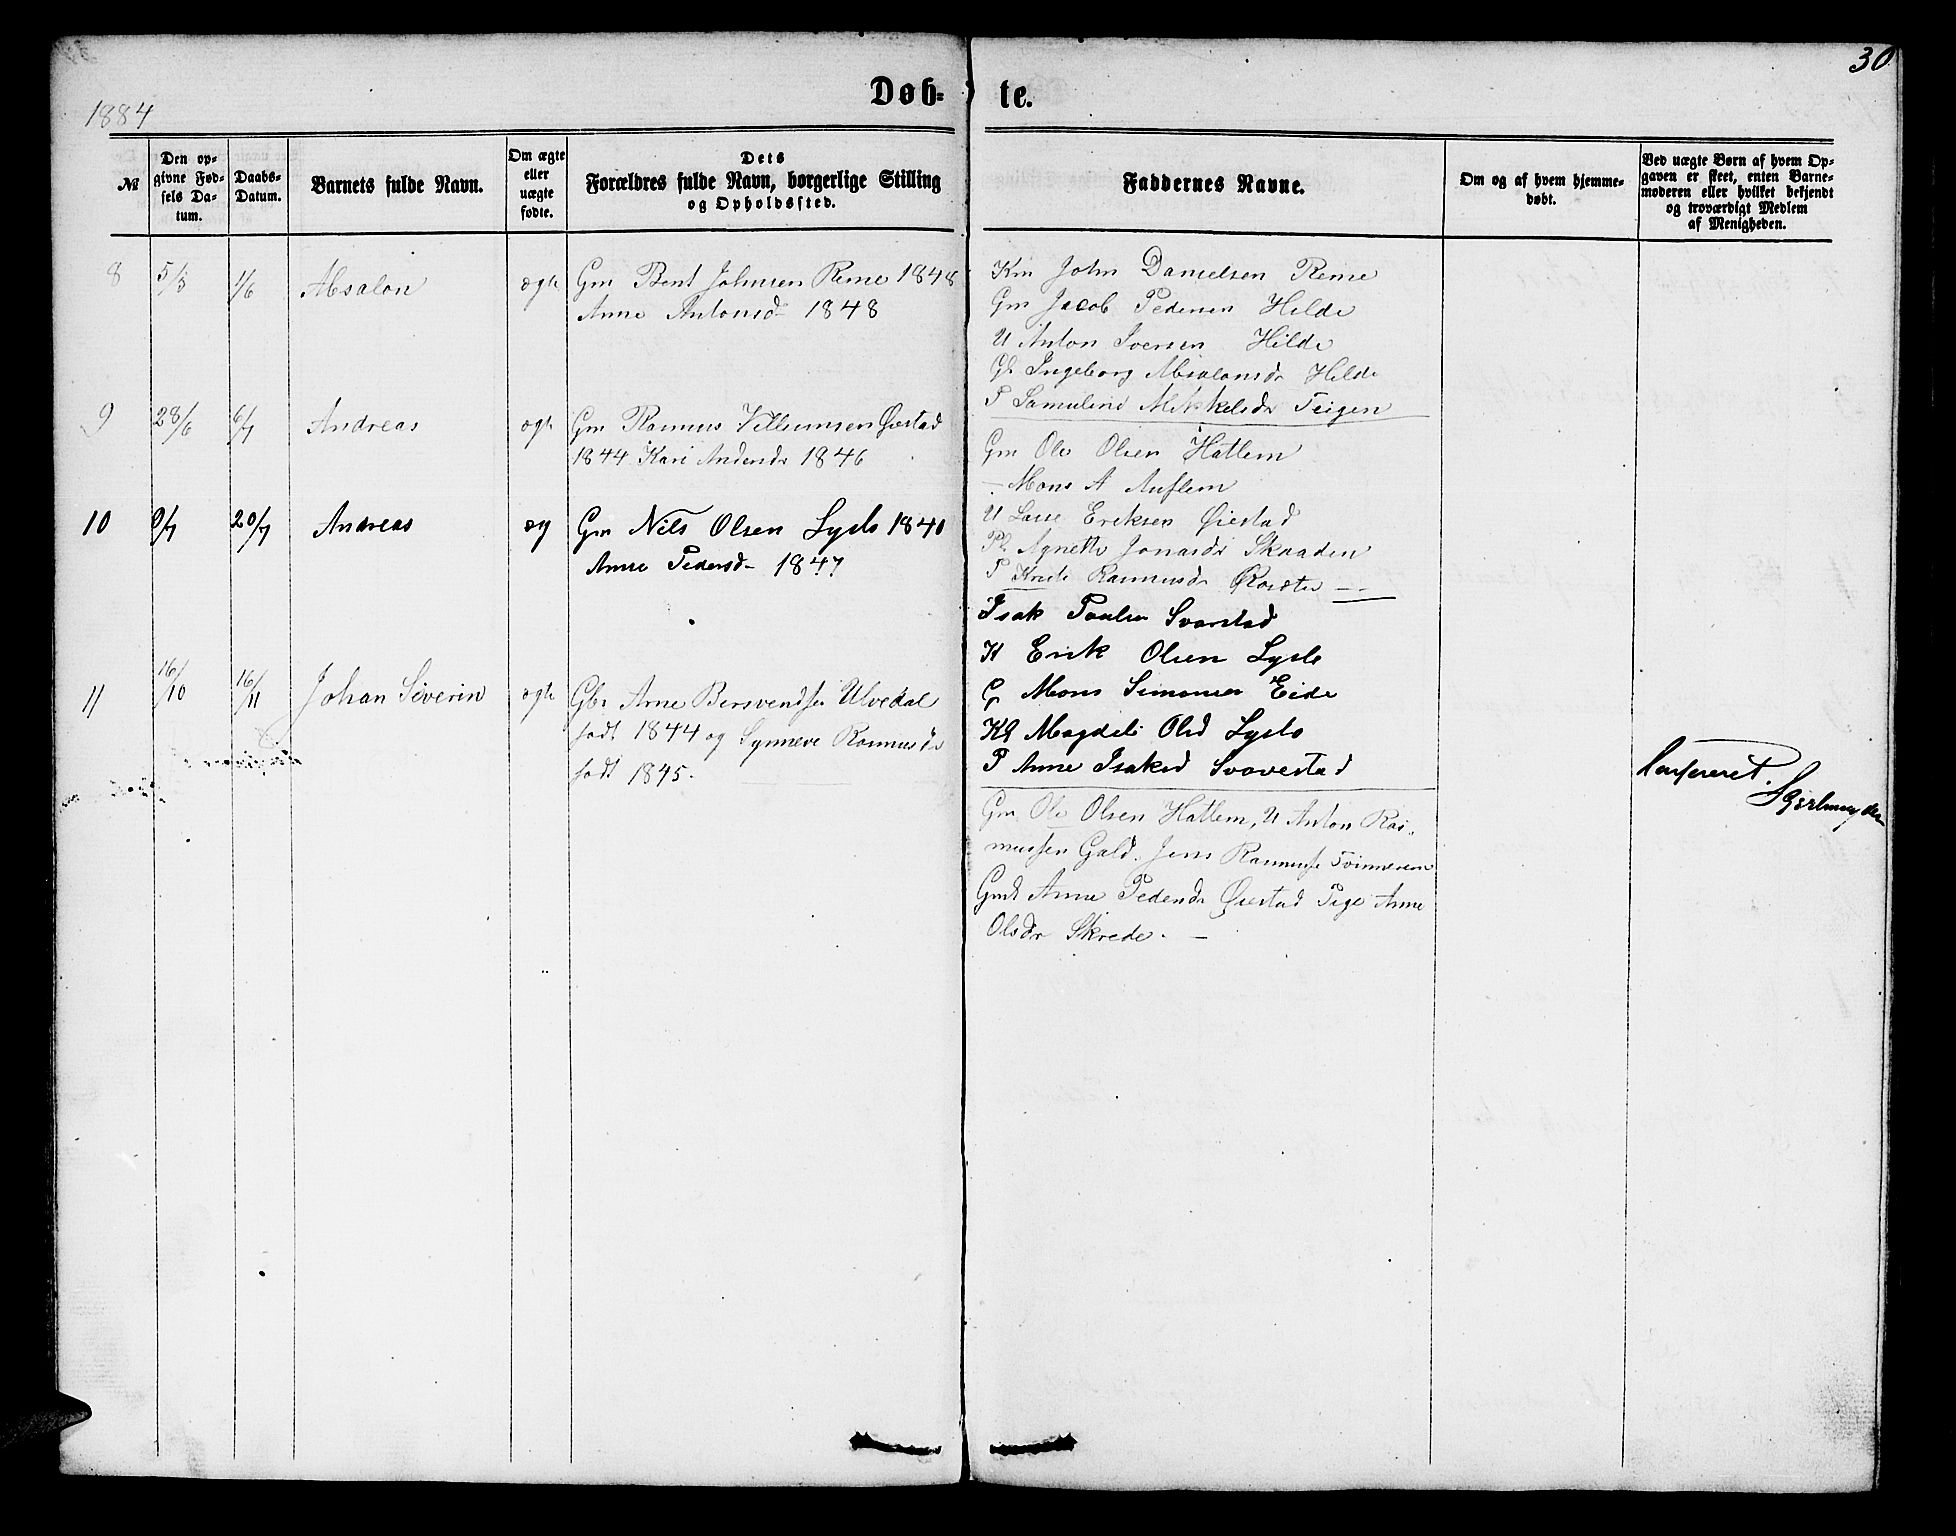 30
1884
Døb-
te.
№
Den op-
givne Fød-
sels Da-
tum.
Daabs-
Datum.
Barnets fulde Navn.
Om ægte
eller
uægte
fødte.
Dets
Forældres fulde Navn, borgerlige Stilling
og Opholdssted.
Faddernes Navne.
Om og af hvem hjemme-
døbt.
Ved uægte Børn af hvem Op-
gaven er skeet, enten Barne-
moderen eller hvilket bekjendt
og troværdigt Medlem
af Menigheden.
8
5/5
1/6
Absalon
ægte
Gm Bent Johnsen Reme 1848
Anne Antonsd 1848
Km John Danielsen Reme
Gm Jacob Pedersen Hilde
U Anton Iversen Hilde
Ingeborg Absalonsdr Hilde
P Samuline Mikkelsdr Teigen
9
28/6
6/7
Andreas
ægte
Gm Rasmus Villumsen Øiestad
1844 Kari Andersdr 1846
Gm Ole Olsen Hatlem
- Mons A Auflem
U Lasse Eriksen Øiestad
Agnethe Jonasdr Skaaden
P Rasmusdr
10
9/7
20/7
Andreas
æg
Gm Nils Olsen Lyslo 1840
Anne Pedersd 1847
Isak Paulsen Svarstad
K Erik Olsen Lyslo
G Mons Simonsen Eide
Magdeli Olsd Lyslo
P Anne Isaksd Svarestad
11
16/10
16/11
Johan Severin
ægte
Gbr Arne Bersvendsen Ulvedal
født 1844 og Synneve Rasmusdr
født 1845.
Gm Ole Olsen Hatlem, U Anton Ras-
mussen Gald. Jens Rasmusse Tvinnerem
Anne Pedersdr Øiestad Pige Anne
Olsdr Skrede. -
Confereret.